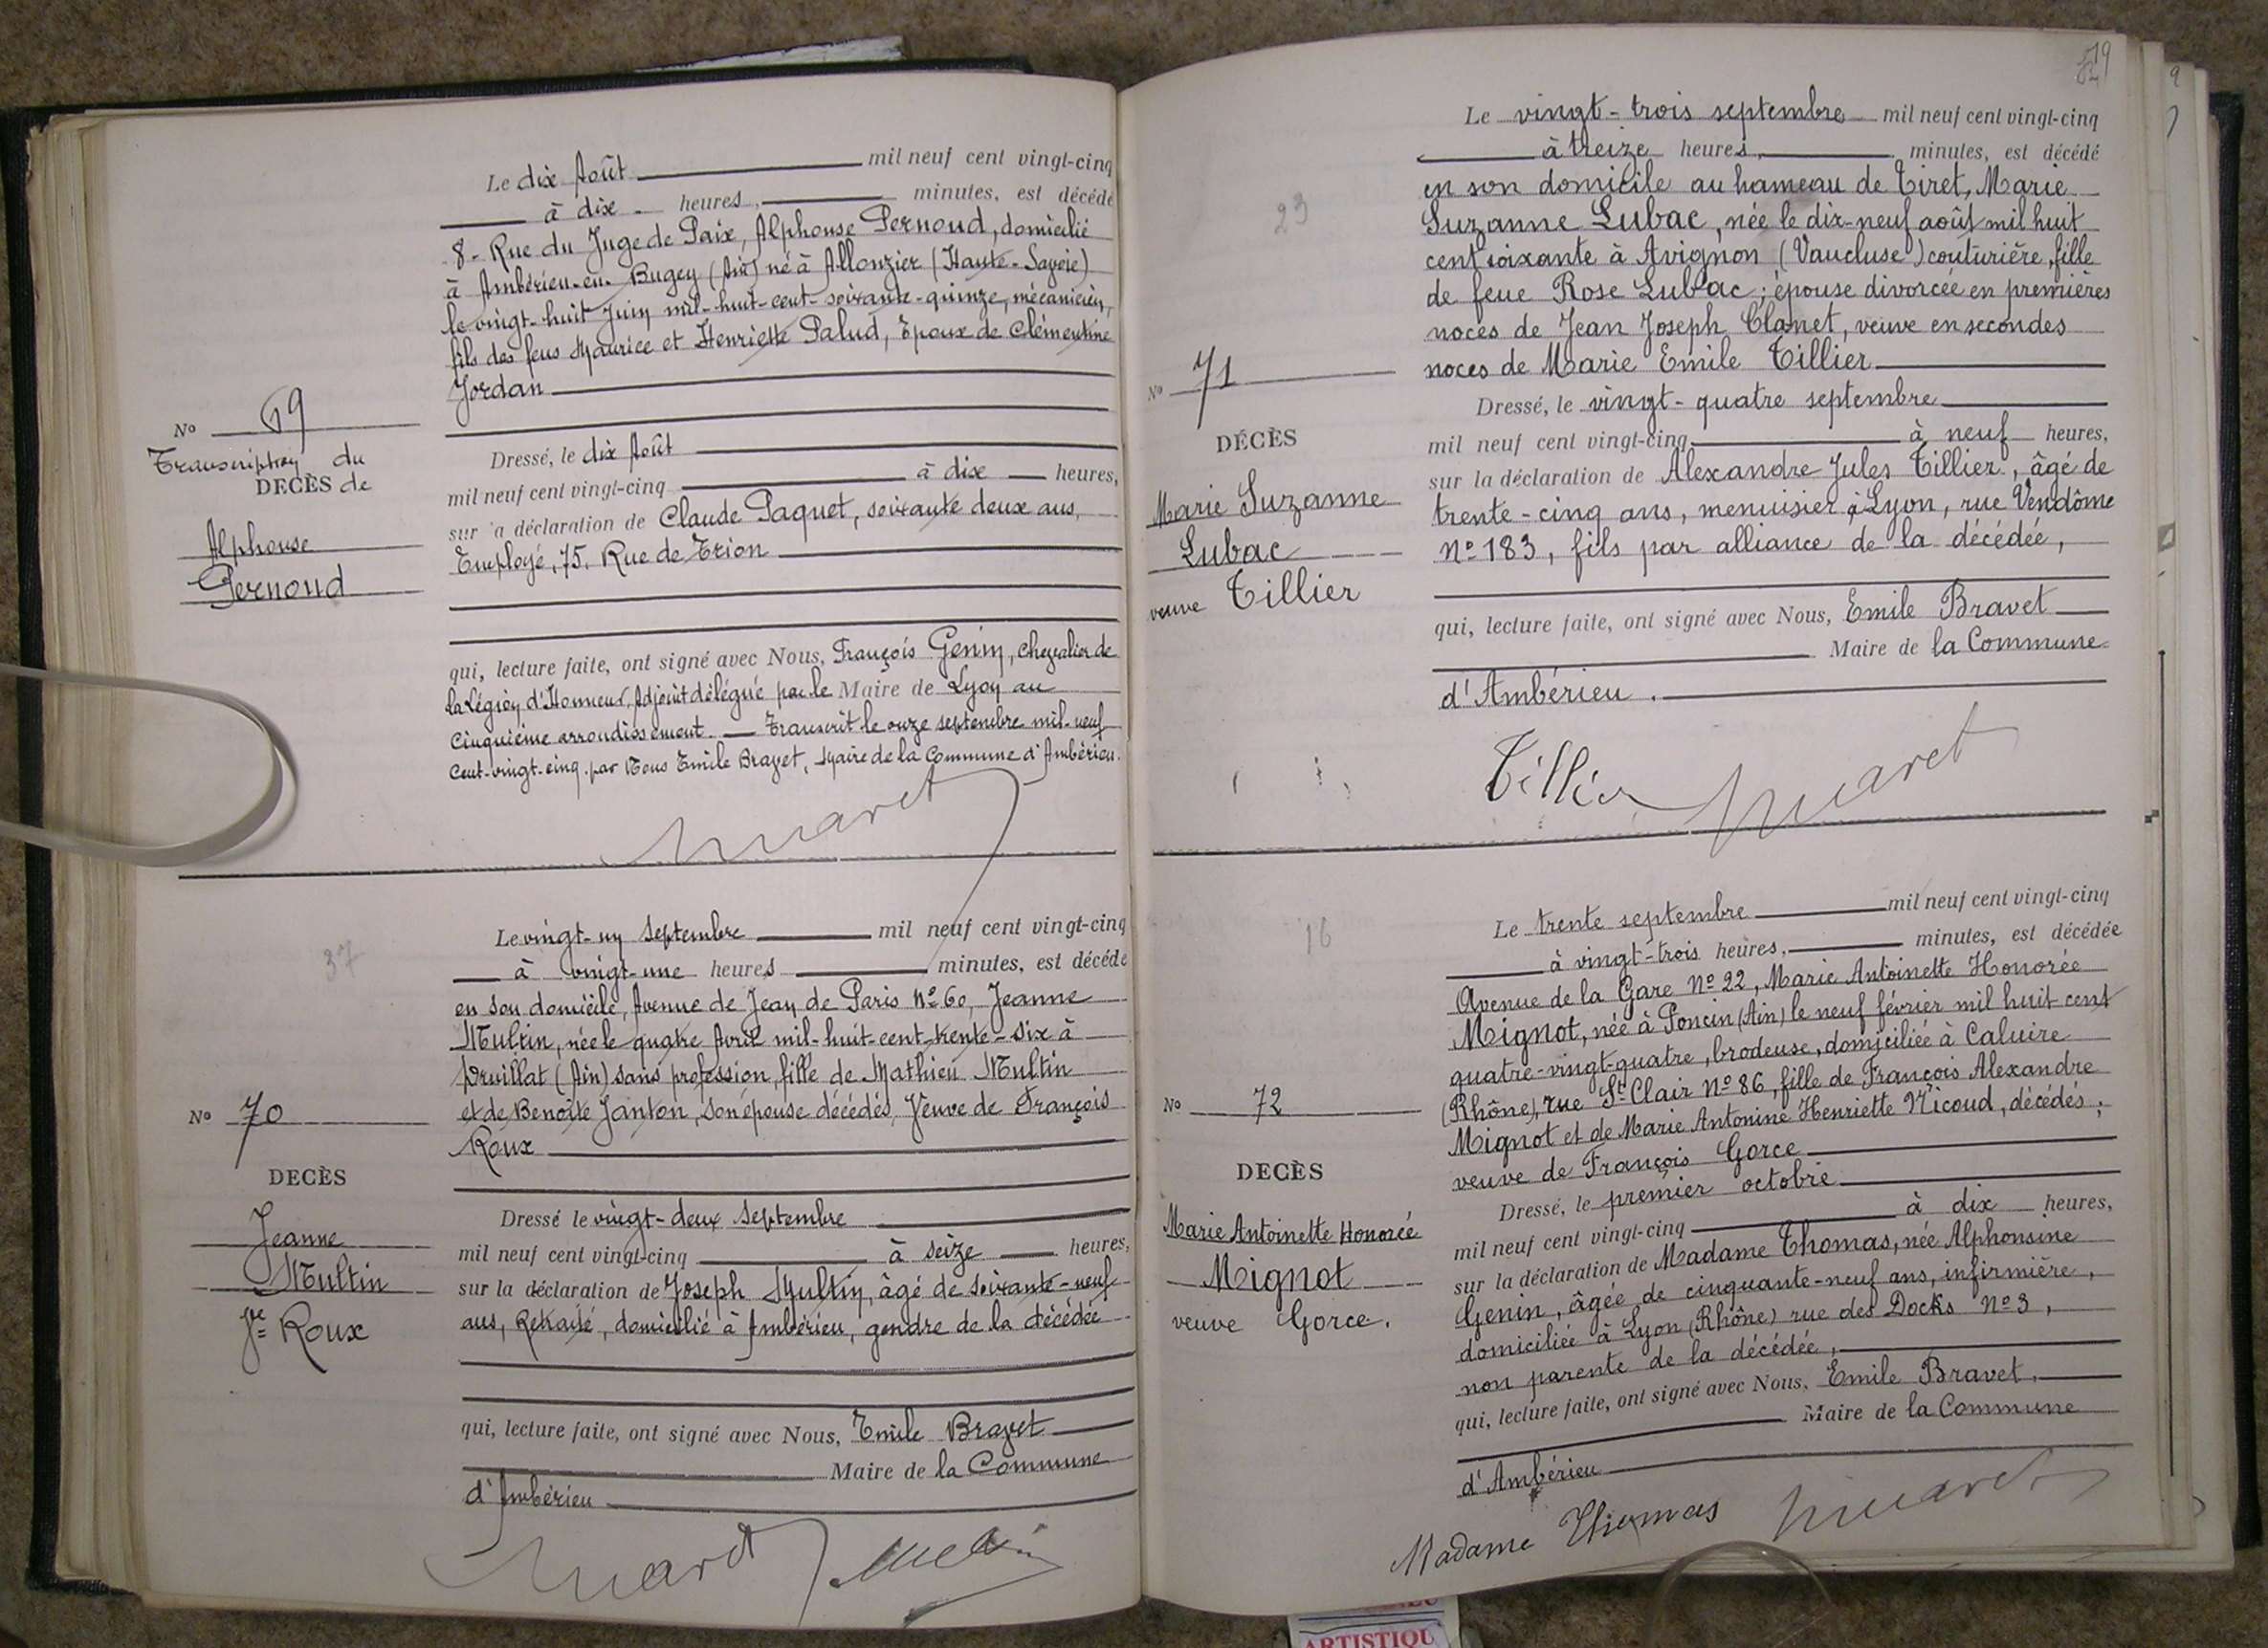 Le dix Août mil neuf cent vingt-cinq
à dix heures, minutes, est décédé
8 - Rue du Juge de Paix, Alphonse Pernoud, domicilié
à Ambérieu-en-Bugey (Ain) né à Allonzier (Haute-Savoie)
le vingt-huit Juin mil-huit-cent-soixante-quinze, mécanicien,
fils des feus Maurice et Henriette Palud, Epoux de Clémentine
Jordan
No 69
Transcription du
DECÈS de
Alphonse
Pernoud
Dressé, le dix Août
mil neuf cent vingt-cinq à dix heures,
sur a déclaration de Claude Paquet, soixante deux ans,
Employé, 75, Rue de Trion
qui, lecture faite, ont signé avec Nous, François Genin, Chevalier de
la Légion d'Honneur, Adjoint délégué par le Maire de Lyon au
Cinquième arrondissement. — Transcrit le onze septembre mil-neuf
Cent-vingt-cinq par Nous Emile Bravet, Maire de la Commune d'Ambérieu.
37
Le vingt-un Septembre mil neuf cent vingt-cinq
à vingt-une heures minutes, est décédé
en son domicile, Avenue de Jean de Paris No 60, Jeanne
Multin, née le quatre Avril mil-huit-cent-trente-six à
Druillat (Ain) sans profession, fille de Mathieu Multin
et de Benoîte Janton, son épouse décédés, Veuve de François
Roux
No 70
DECÈS
Jeanne
Multin
Ve Roux
Dressé le vingt-deux Septembre
mil neuf cent vingt-cinq à seize heures,
sur la déclaration de Joseph Multin, âgé de soixante-neuf
ans, Retraité, domicilié à Ambérieu, gendre de la décédée
qui, lecture faite, ont signé avec Nous, Emile Bravet
Maire de la Commune
d'Ambérieu
19
Le vingt-trois septembre mil neuf cent vingt-cinq
à treize heures, minutes, est décédé
en son domicile au hameau de Tiret, Marie
Suzanne Lubac, née le dix-neuf août mil huit
cent soixante à Avignon (Vaucluse) couturière, fille
de feue Rose Lubac ; épouse divorcée en premières
noces de Jean Joseph Clanet, veuve en secondes
noces de Marie Emile Tillier
23
No 71
DÉCÈS
Marie Suzanne
Lubac
veuve Tillier
Dressé, le vingt-quatre septembre
mil neuf cent vingt-cinq à neuf heures,
sur la déclaration de Alexandre Jules Tillier, âgé de
trente-cinq ans, menuisier à Lyon, rue Vendôme
No 183, fils par alliance de la décédée,
qui, lecture faite, ont signé avec Nous, Emile Bravet
Maire de la Commune
d'Ambérieu.
Tillier
16
Le trente septembre mil neuf cent vingt-cinq
à vingt-trois heures, minutes, est décédée
Avenue de la Gare No 22, Marie Antoinette Honorée
Mignot, née à Poncin (Ain) le neuf février mil huit cent
quatre-vingt-quatre, brodeuse, domiciliée à Caluire
(Rhône), rue St Clair No 86, fille de François Alexandre
Mignot et de Marie Antonine Henriette Nicoud, décédés ;
veuve de François Gorce
No 72
DECÈS
Marie Antoinette Honorée
Mignot
veuve Gorce.
Dressé, le premier octobre
mil neuf cent vingt-cinq à dix heures,
sur la déclaration de Madame Thomas, née Alphonsine
Genin, âgée de cinquante-neuf ans, infirmière,
domiciliée à Lyon (Rhône) rue des Docks No 3,
non parente de la décédée,
qui, lecture faite, ont signé avec Nous, Emile Bravet,
Maire de la Commune
d'Ambérieu
Madame Thomas
ARTISTIQU